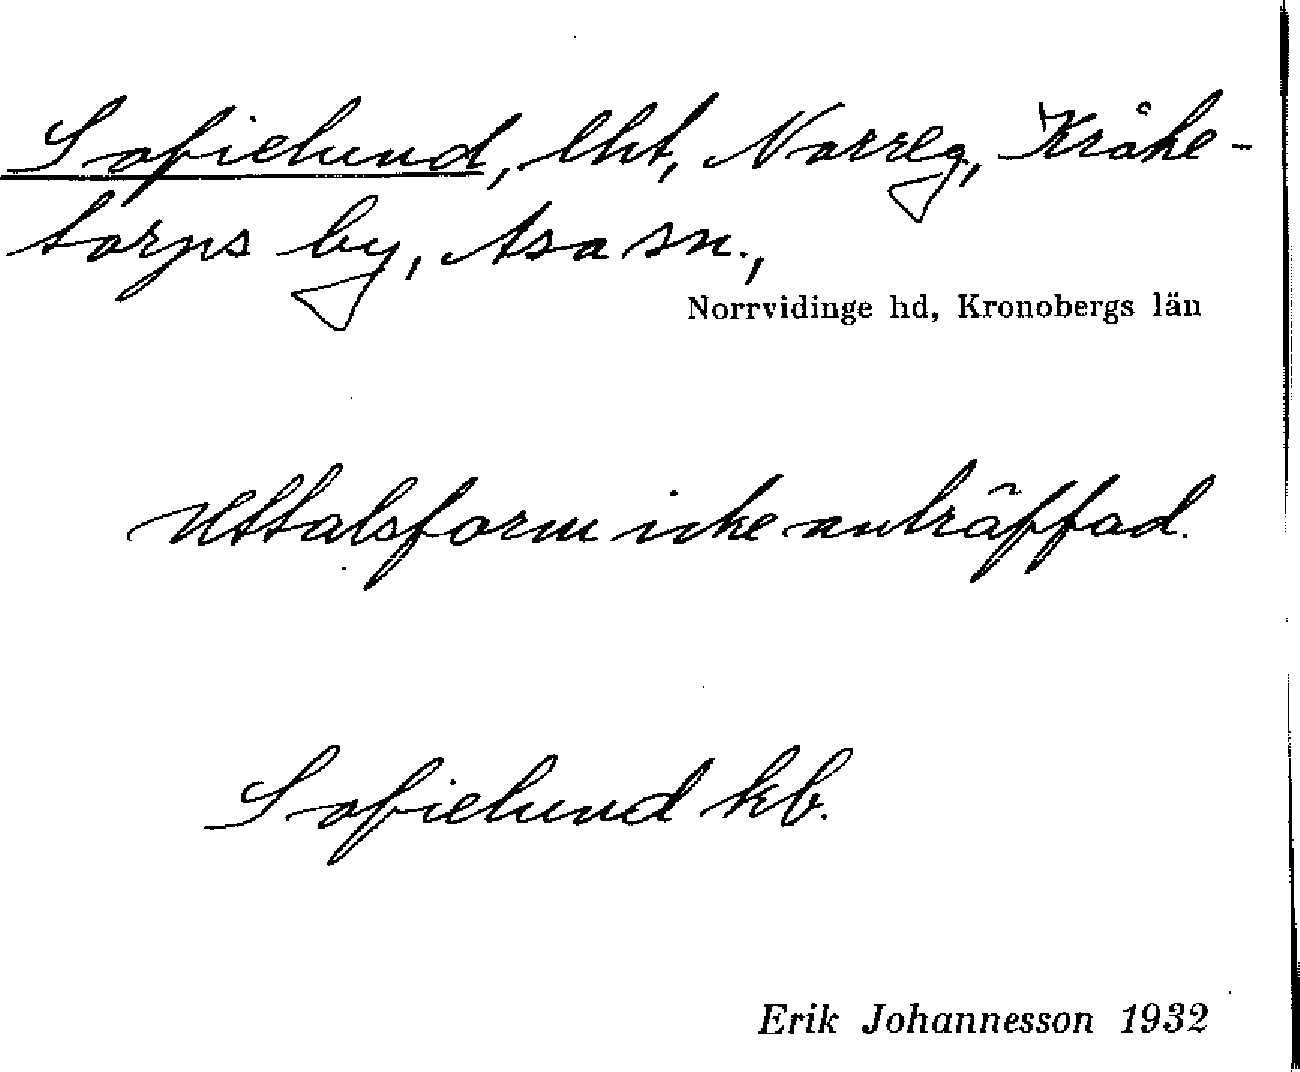 Sofielund, lht, Norreg, Kråke-
torps by, Asa sn.,
Norrvidinge hd, Kronobergs län
Uttalsform icke anträffad.
Sofielund kb.
Erik Johannesson 1932